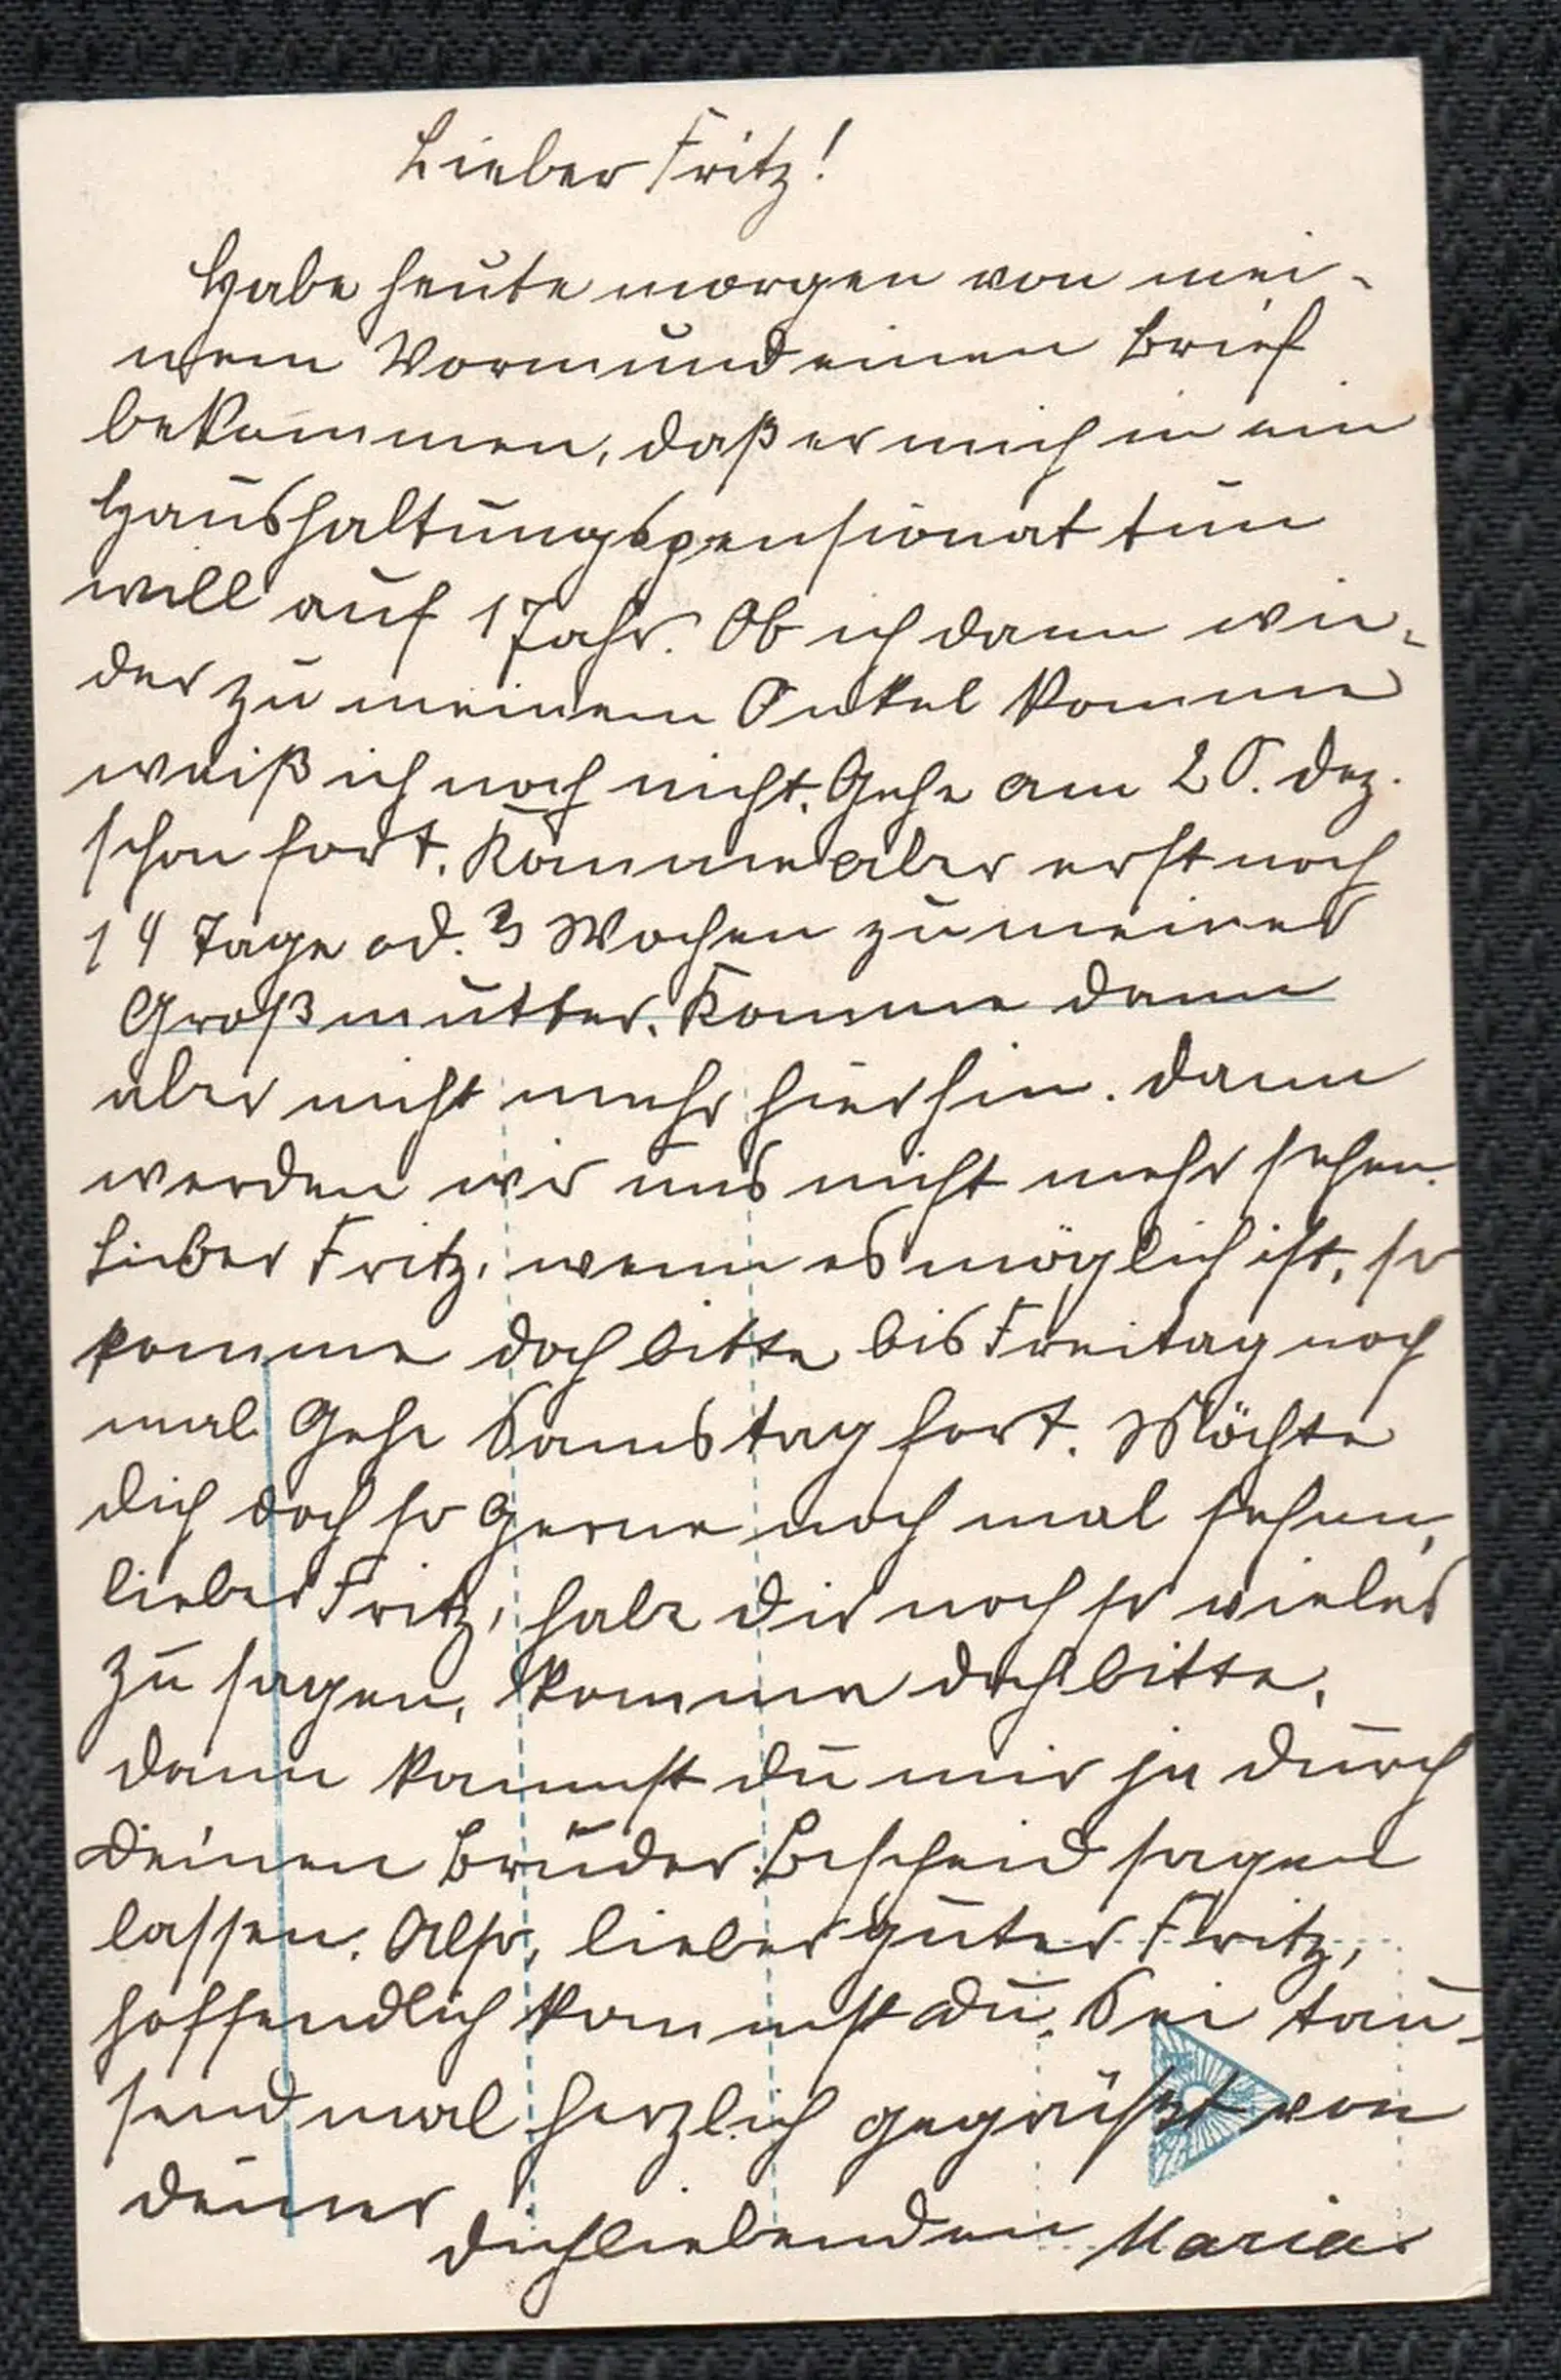 Lieber Fritz!
Habe heute morgen von mei-
nem Vormund einen Brief
bekommen, daß er mich in ein
Haushaltungspensionat tun
will auf 1 Jahr. Ob ich dann wie-
der zu meinem Onkel komme
weiß ich noch nicht. Gehe am 20. Dez.
schon fort. Komme aber erst noch
14 Tage od. 3 Wochen zu meiner
Großmutter. Komme dann
aber nicht mehr hierhin. Dann
werden wir uns nicht mehr sehen.
Lieber Fritz, wenn es möglich ist, so
komme doch bitte bis Freitag noch
mal Gehe Samstag fort. Möchte
dich doch so gerne noch mal sehen,
lieber Fritz, habe dir noch so vieles
zu sagen, komme doch bitte,
dann kannst du mir ja durch
deinen Bruder Bescheid sagen
lassen. Also, lieber guter Fritz,
hoffendlich kommst du. Sei tau-
sendmal herzlich gegrüßt von
deiner
dichliebenden Maria